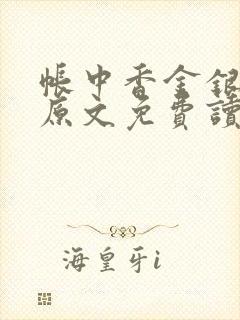 帳中香金銀
原文免費讀
海皇牙i